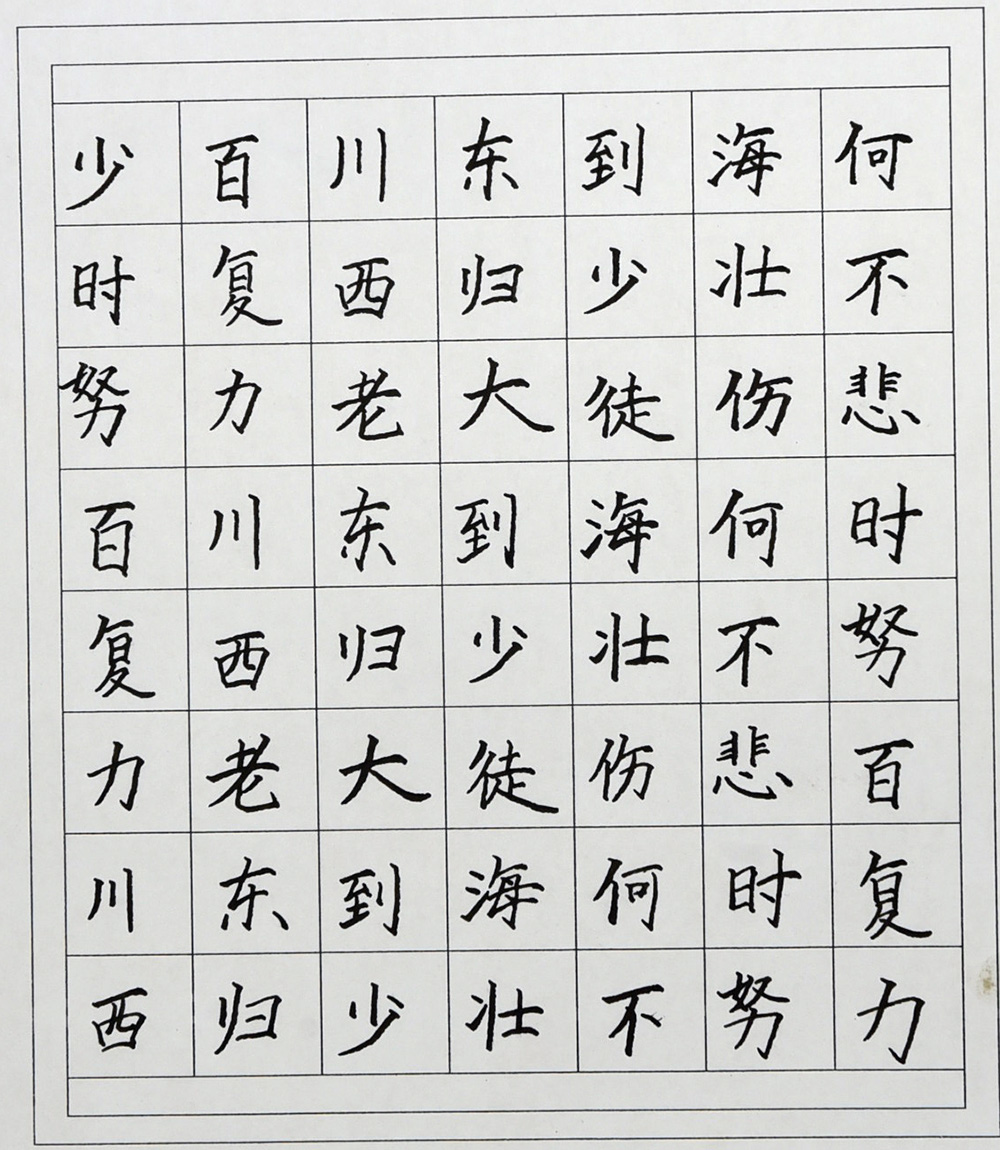 少百川东到海何
时复西归少壮不
努力老大徒伤悲
百川东到海何时
复西归少壮不努
力老大徒伤悲百
川东到海何时复
西归少壮不努力